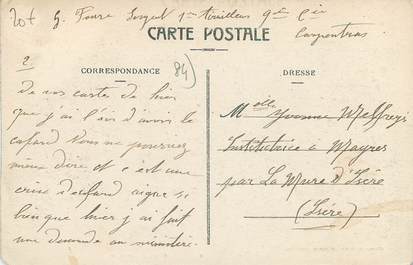 20f G. Faure Sergent 1er Tirailleurs 9e Cie
Carpentras
CARTE POSTALE
CORRESPONDANCE
DRESSE
84)
2
de vos cartes de hier
que j'ai l'air d'avoir le
cafard Vous ne pouvez
mieux dire et c'est une
crise de cafard aigue si
bien que hier j'ai fait
une demande au ministère
Melle Yvonne
Institutrice à Mayres
par La Mure d'Isère
(Isère)